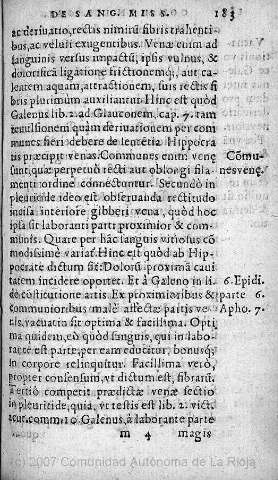 DE SANG. MISS. 183
ac deriuatio, rectis nimirũ fibris trahenti-
bus, ac veluti exugentibus. Venæ enim ad
sanguinis versus impactũ, ipsis vulnus, &
dolorifica ligatione frictionemq́;, aut ca-
lentem aquam, attractionem, suis rectis fi
bris plurimùm auxiliantur. Hinc est quòd
Galenus lib. 2. ad Glauconem, cap. 7. tam
reuulsionem quàm deriuationem per com
munes fieri debere de sententia Hippocra
tis præcipit venas. Communes enim venę
Cõmu-
sunt, quæ perpetuò recti aut oblongi fila-
nesvenę.
menti ordine connectuntur. Secundò in
pleuritide ideo est obseruanda rectitudo
incisa interiore gibberi vena, quòd hoc
ipsa sit laboranti parti proximior & com-
munis. Quare per hãc sanguis vitiosus cõ
modissimè variat. Hinc est quòd ab Hip-
pocrate dictum sit: Dolorũ proximã caui
tatem incidere oportet. Et à Galeno in li-
6. Epidi.
de cõstitutione artis. Ex proximioribus &
parte 6.
communioribus malè affectæ partis ve-
Apho. 7.
nis, vacuatio sit optima & facillima. Opti
ma quidem, eò quòd sanguis, qui in labo-
rante est parte, per eam educitur, bonusq́;
in corpore relinquitur. Facillima verò,
propter consensum, vt dictum est, fibrarũ.
Tertiò competit prædictæ venæ sectio
in pleuritide, quia, vt testis est lib. 2. vict.
acut. com. 10 Galenus, à laborante parte
m 4 magis
(c) 2007 Comunidad Autónoma de La Rioja